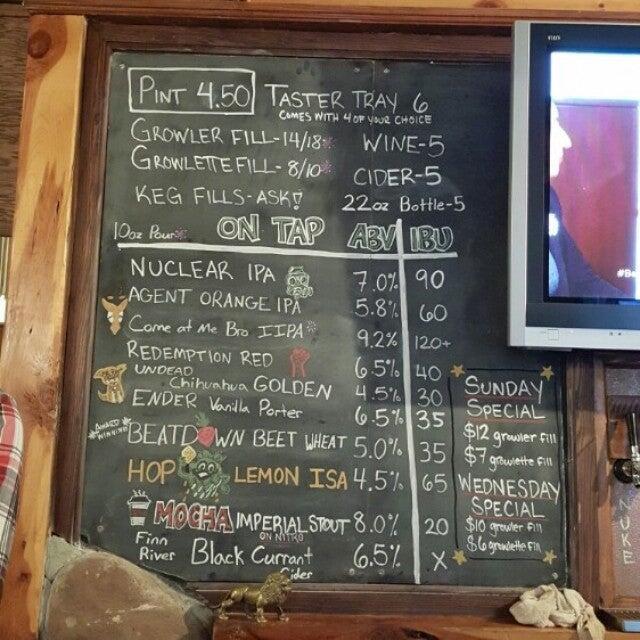 PINT 4.50 TASTER TRAY 6
COMES WITH 4 OF YOUR CHOICE
GROWLER FILL-14/18* WINE-5
GROWLETTE FILL-8/10* CIDER-5
KEG FILLS-ASK! 22oz Bottle-5
10oz Pour* ON TAP ABV IBU
NUCLEAR IPA 7.0% 90
AGENT ORANGE IPA 5.8% 60
Come at Me Bro IIPA* 9.2% 120+
REDEMPTION RED 6.5% 40
UNDEAD Chihuahua GOLDEN 4.5% 30
ENDER Vanilla Porter 6.5% 35
*AWARD WINNING* BEATDOWN BEET WHEAT 5.0% 35
HOP LEMON ISA 4.5% 65
MOCHA IMPERIAL STOUT 8.0% 20
ON NITRO
Finn River Black Currant Cider 6.5% X
SUNDAY
SPECIAL
$12 growler fill
$7 growlette fill
WEDNESDAY
SPECIAL
$10 growler fill
$6 growlette fill
VIZIO
NUKE